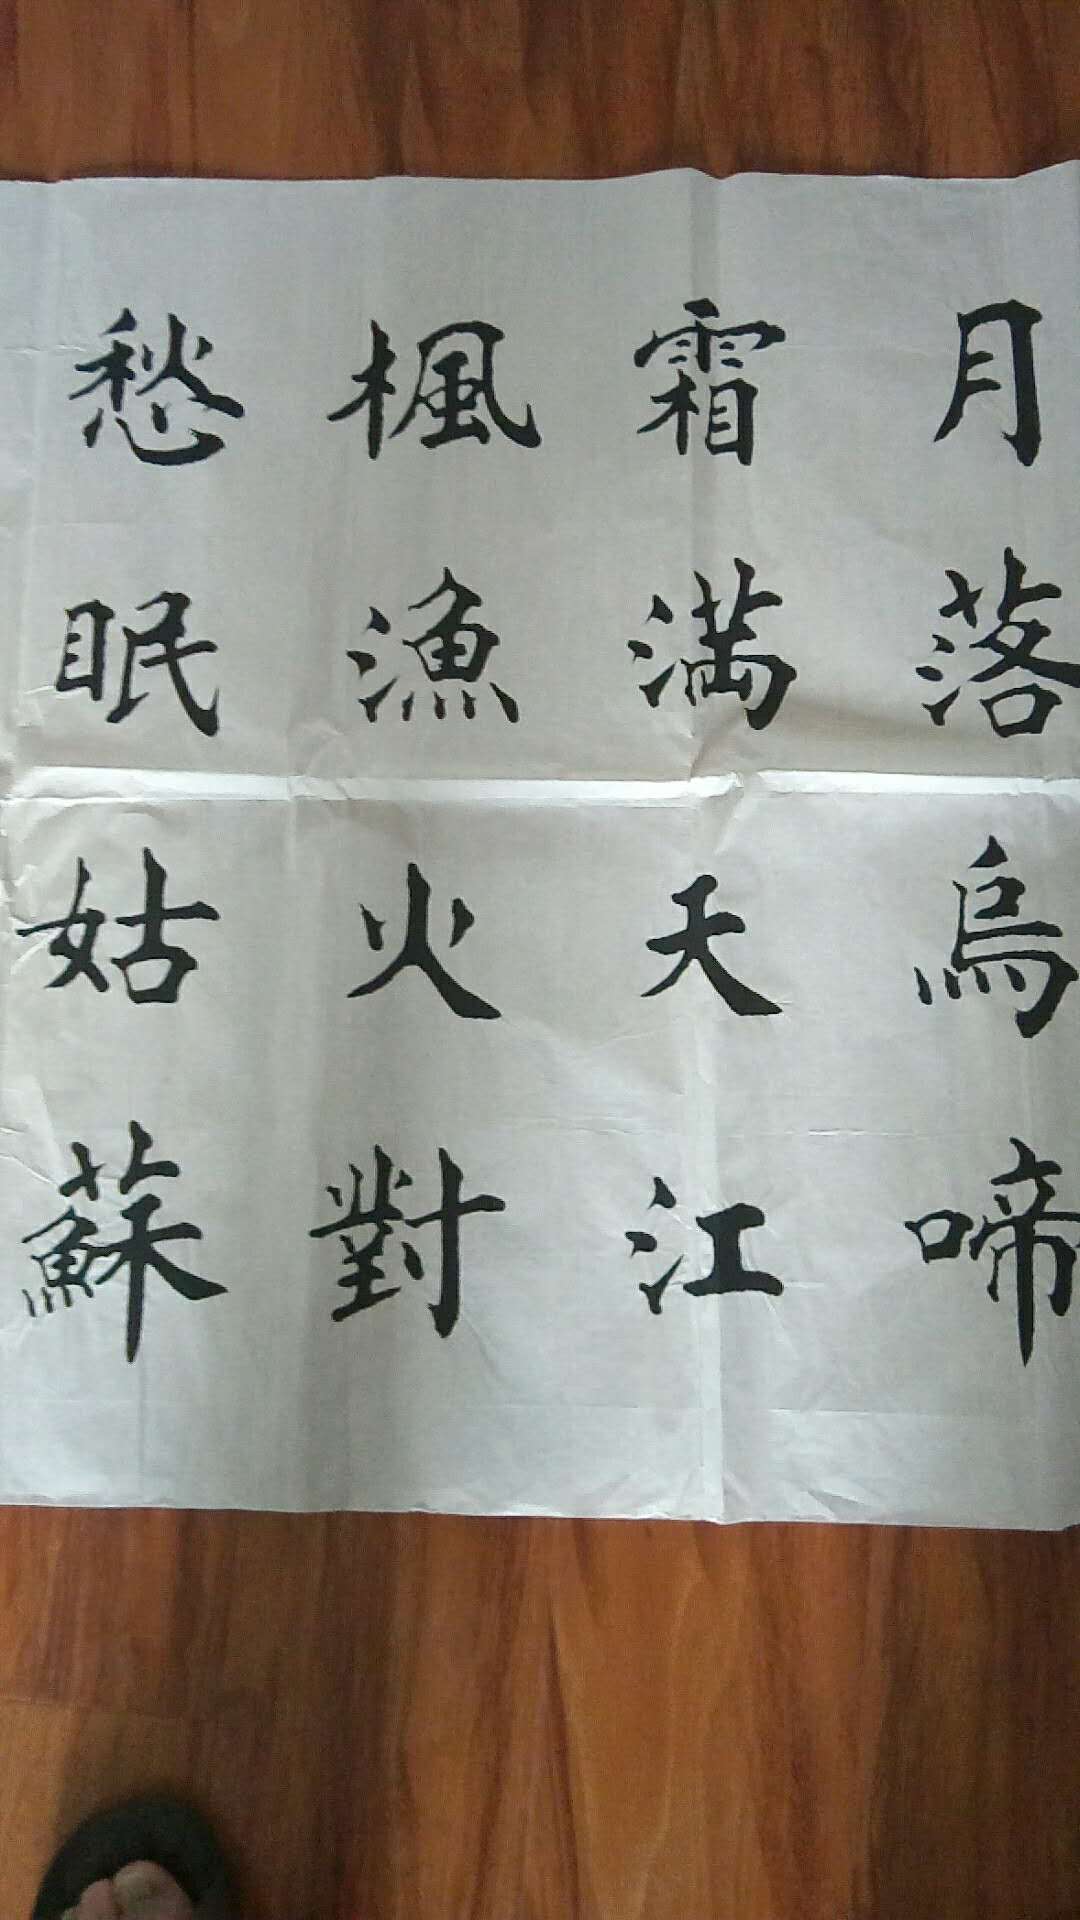 月落烏啼
霜満天江
楓漁火對
愁眠姑蘇